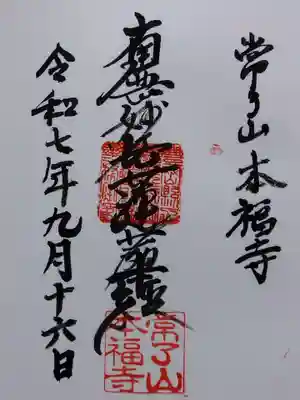 常了山 本福寺
南無妙法蓮華経
令和七年九月十六日
常了山
本福寺